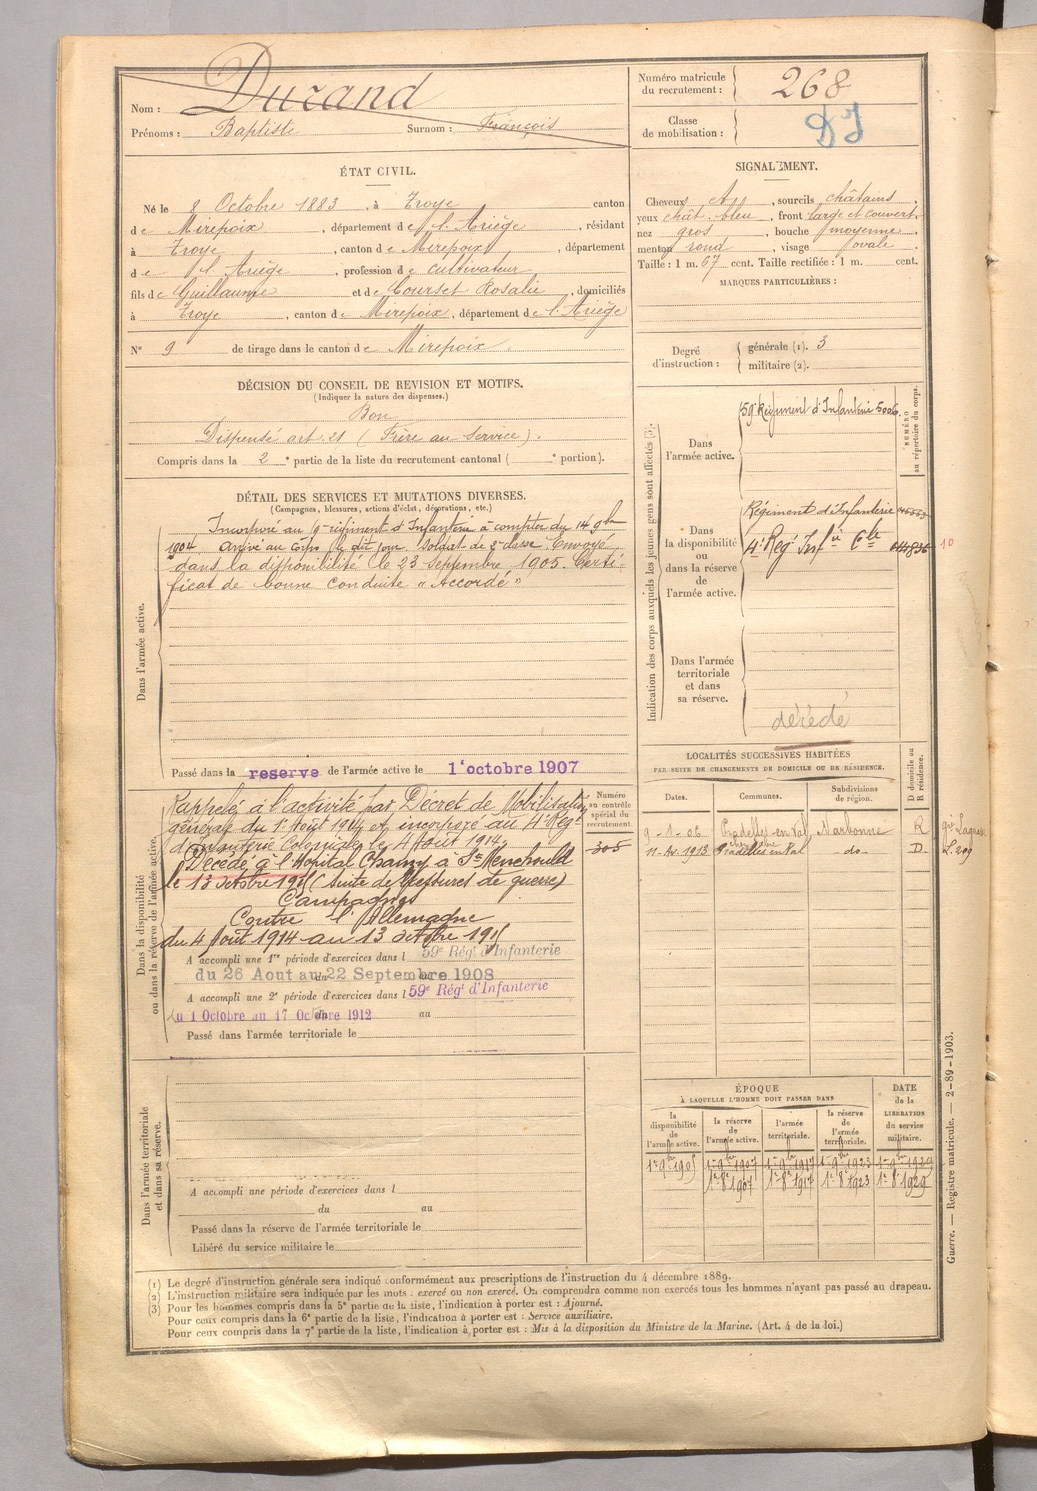 Nom : Durand
Prénoms : Baptiste Surnom : François
Numéro matricule du recrutement : 268
Classe de mobilisation :
ÉTAT CIVIL.
Né le 8 Octobre 1883, à Troye canton
de Mirepoix, département de l'Ariège, résidant
à Troye, canton de Mirepoix, département
de l'Ariège, profession de cultivateur
fils de Guillaume et de Courset Rosalie, domiciliés
à Troye, canton de Mirepoix, département de l'Ariège
N° 9 de tirage dans le canton de Mirepoix.
SIGNALEMENT.
Cheveux, sourcils châtains,
yeux chât. bleu, front large et couvert,
nez gros, bouche moyenne,
menton rond, visage ovale.
Taille : 1 m. 67 cent. Taille rectifiée : 1 m. cent.
MARQUES PARTICULIÈRES :
Degré d'instruction : générale (1). 3
militaire (2).
DÉCISION DU CONSEIL DE REVISION ET MOTIFS.
(Indiquer la nature des dispenses.)
Bon
Dispensé art. 21 (Frère au service).
Compris dans la 2e partie de la liste du recrutement cantonal ( e portion).
DÉTAIL DES SERVICES ET MUTATIONS DIVERSES.
(Campagnes, blessures, actions d'éclat, décorations, etc.)
Dans l'armée active.
Incorporé au 9e régiment d'Infanterie à compter du 14 9bre
1904. Arrivé au corps le dit jour. Soldat de 2e classe. Envoyé
dans la disponibilité le 23 Septembre 1905. Certi-
ficat de bonne conduite "Accordé"
Passé dans la reserve de l'armée active le 1er octobre 1907
Indication des corps auxquels les jeunes gens sont affectés (3).
NUMÉRO au répertoire du corps.
Dans l'armée active.
59e Régiment d'Infanterie 5006.
Dans la disponibilité ou dans la réserve de l'armée active.
Régiment d'Infanterie
4e Reg. Inf ie Cle 10
Dans l'armée territoriale et dans sa réserve.
décédé
Dans la disponibilité ou dans la réserve de l'armée active.
Rappelé à l'activité par Décret de Mobilisation
générale du 1er Août 1914 et incorporé au 4e Regt
d'Infanterie Coloniale le 4 Août 1914.
Décédé à l'Hôpital à Ste Menehould
le 13 octobre 1915 (suite de blessures de guerre)
Campagnes
Contre l'Allemagne
du 4 Août 1914 au 13 octobre 1915
Numéro au contrôle spécial du recrutement.
305
A accompli une 1re période d'exercices dans l 59e Régt d'Infanterie
du 26 Aout au 22 Septembre 1908
A accompli une 2e période d'exercices dans l 59e Régt d'Infanterie
du 1 Octobre au 17 Octobre 1912 au
Passé dans l'armée territoriale le
LOCALITÉS SUCCESSIVES HABITÉES
PAR SUITE DE CHANGEMENTS DE DOMICILE OU DE RÉSIDENCE.
Dates. Communes. Subdivisions de région. D domicile ou R résidence.
9-1-06 Pradelles-en-Val Narbonne R
11-4-1913 Pradelles en Val -do- D.
Dans l'armée territoriale et dans sa réserve.
A accompli une période d'exercices dans l
du au
Passé dans la réserve de l'armée territoriale le
Libéré du service militaire le
ÉPOQUE
À LAQUELLE L'HOMME DOIT PASSER DANS
la disponibilité de l'armée active. la réserve de l'armée active. l'armée territoriale. la réserve de l'armée territoriale. DATE de la LIBERATION du service militaire.
1er 9bre 1905 1er 9bre 1907 1er 9bre 1917 1er 9bre 1923 1er 9bre 1929
1er 8 1907 1er 8 1917 1er 8 1923 1er 8 1929
(1) Le degré d'instruction générale sera indiqué conformément aux prescriptions de l'instruction du 4 décembre 1889.
(2) L'instruction militaire sera indiquée par les mots : exercé ou non exercé. On comprendra comme non exercés tous les hommes n'ayant pas passé au drapeau.
(3) Pour les hommes compris dans la 5e partie de la liste, l'indication à porter est : Ajourné.
Pour ceux compris dans la 6e partie de la liste, l'indication à porter est : Service auxiliaire.
Pour ceux compris dans la 7e partie de la liste, l'indication à porter est : Mis à la disposition du Ministre de la Marine. (Art. 4 de la loi.)
Guerre. — Registre matricule. — 2-89-1903.